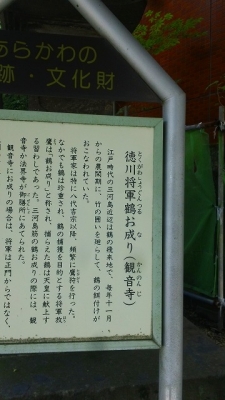 あらかわの
跡・文化財
とくがわしょうぐんつる な かんのんじ
徳川将軍鶴お成り(観音寺)
江戸時代の三河島近辺は鶴の飛来地で、毎年十一月
からの農閑期に、竹の囲いを廻らして、鶴の餌付けが
おこなわれていた。
将軍家は特に八代吉宗以降、頻繁に鷹狩を行った。
なかでも鶴は珍重され、鶴の捕獲を目的とする将軍放
鷹は「鶴お成り」と称され、捕らえた鶴は天皇に献上す
る習わしであった。三河島筋の鶴お成りの際には、観
音寺か法界寺が御膳所にあてられた。
観音寺にお成りの場合は、将軍は正門からではなく、